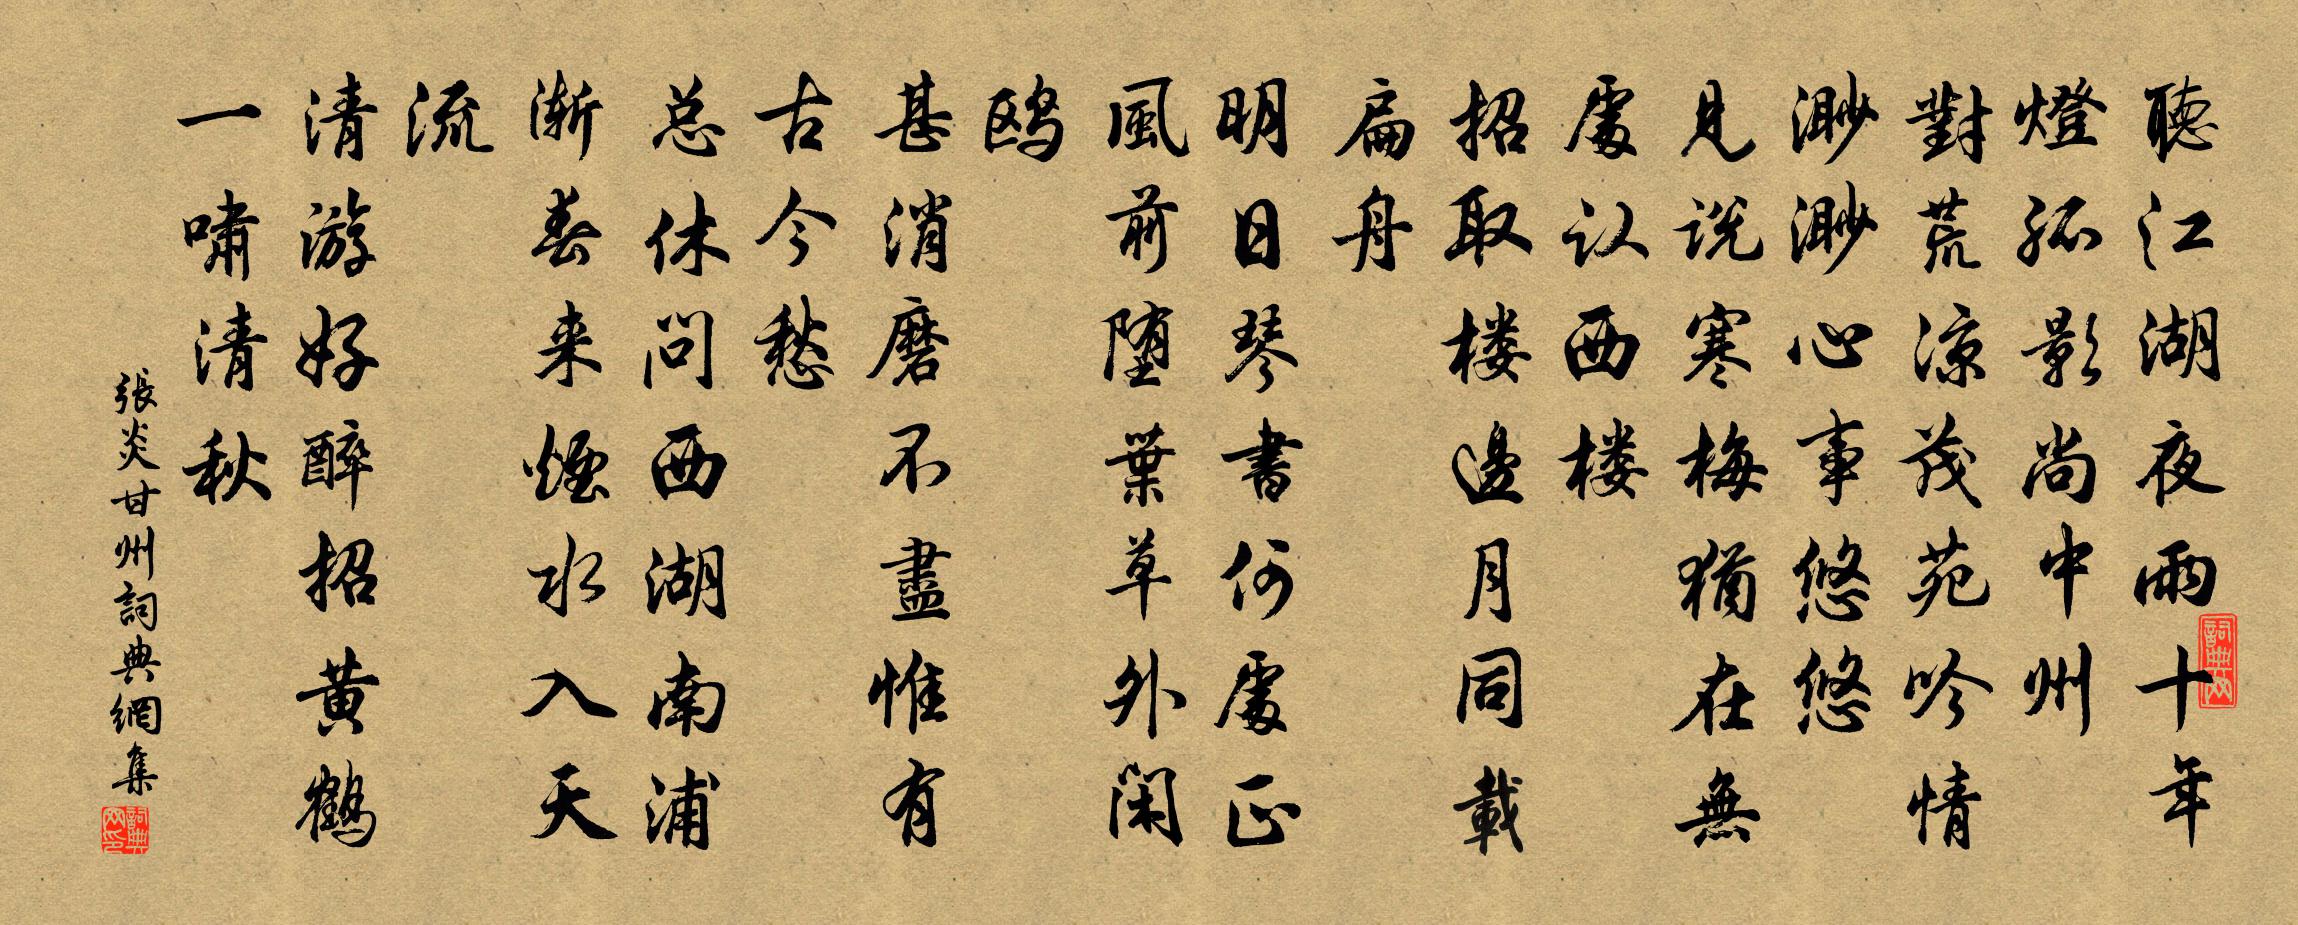 聽江湖夜雨十年
燈孤影尚中州
對荒涼茂苑吟情
渺渺心事悠悠
見説寒梅猶在無
處认西楼
招取楼邊月同載
扁舟
明日琴書何處正
風前墮葉草外閑
鸥
甚消磨不盡惟有
古今愁
总休问西湖南浦
渐春来煙水入天
流
清游好醉招黄鹤
一嘯清秋
張炎甘州詞典網集
詞典网
詞典网印